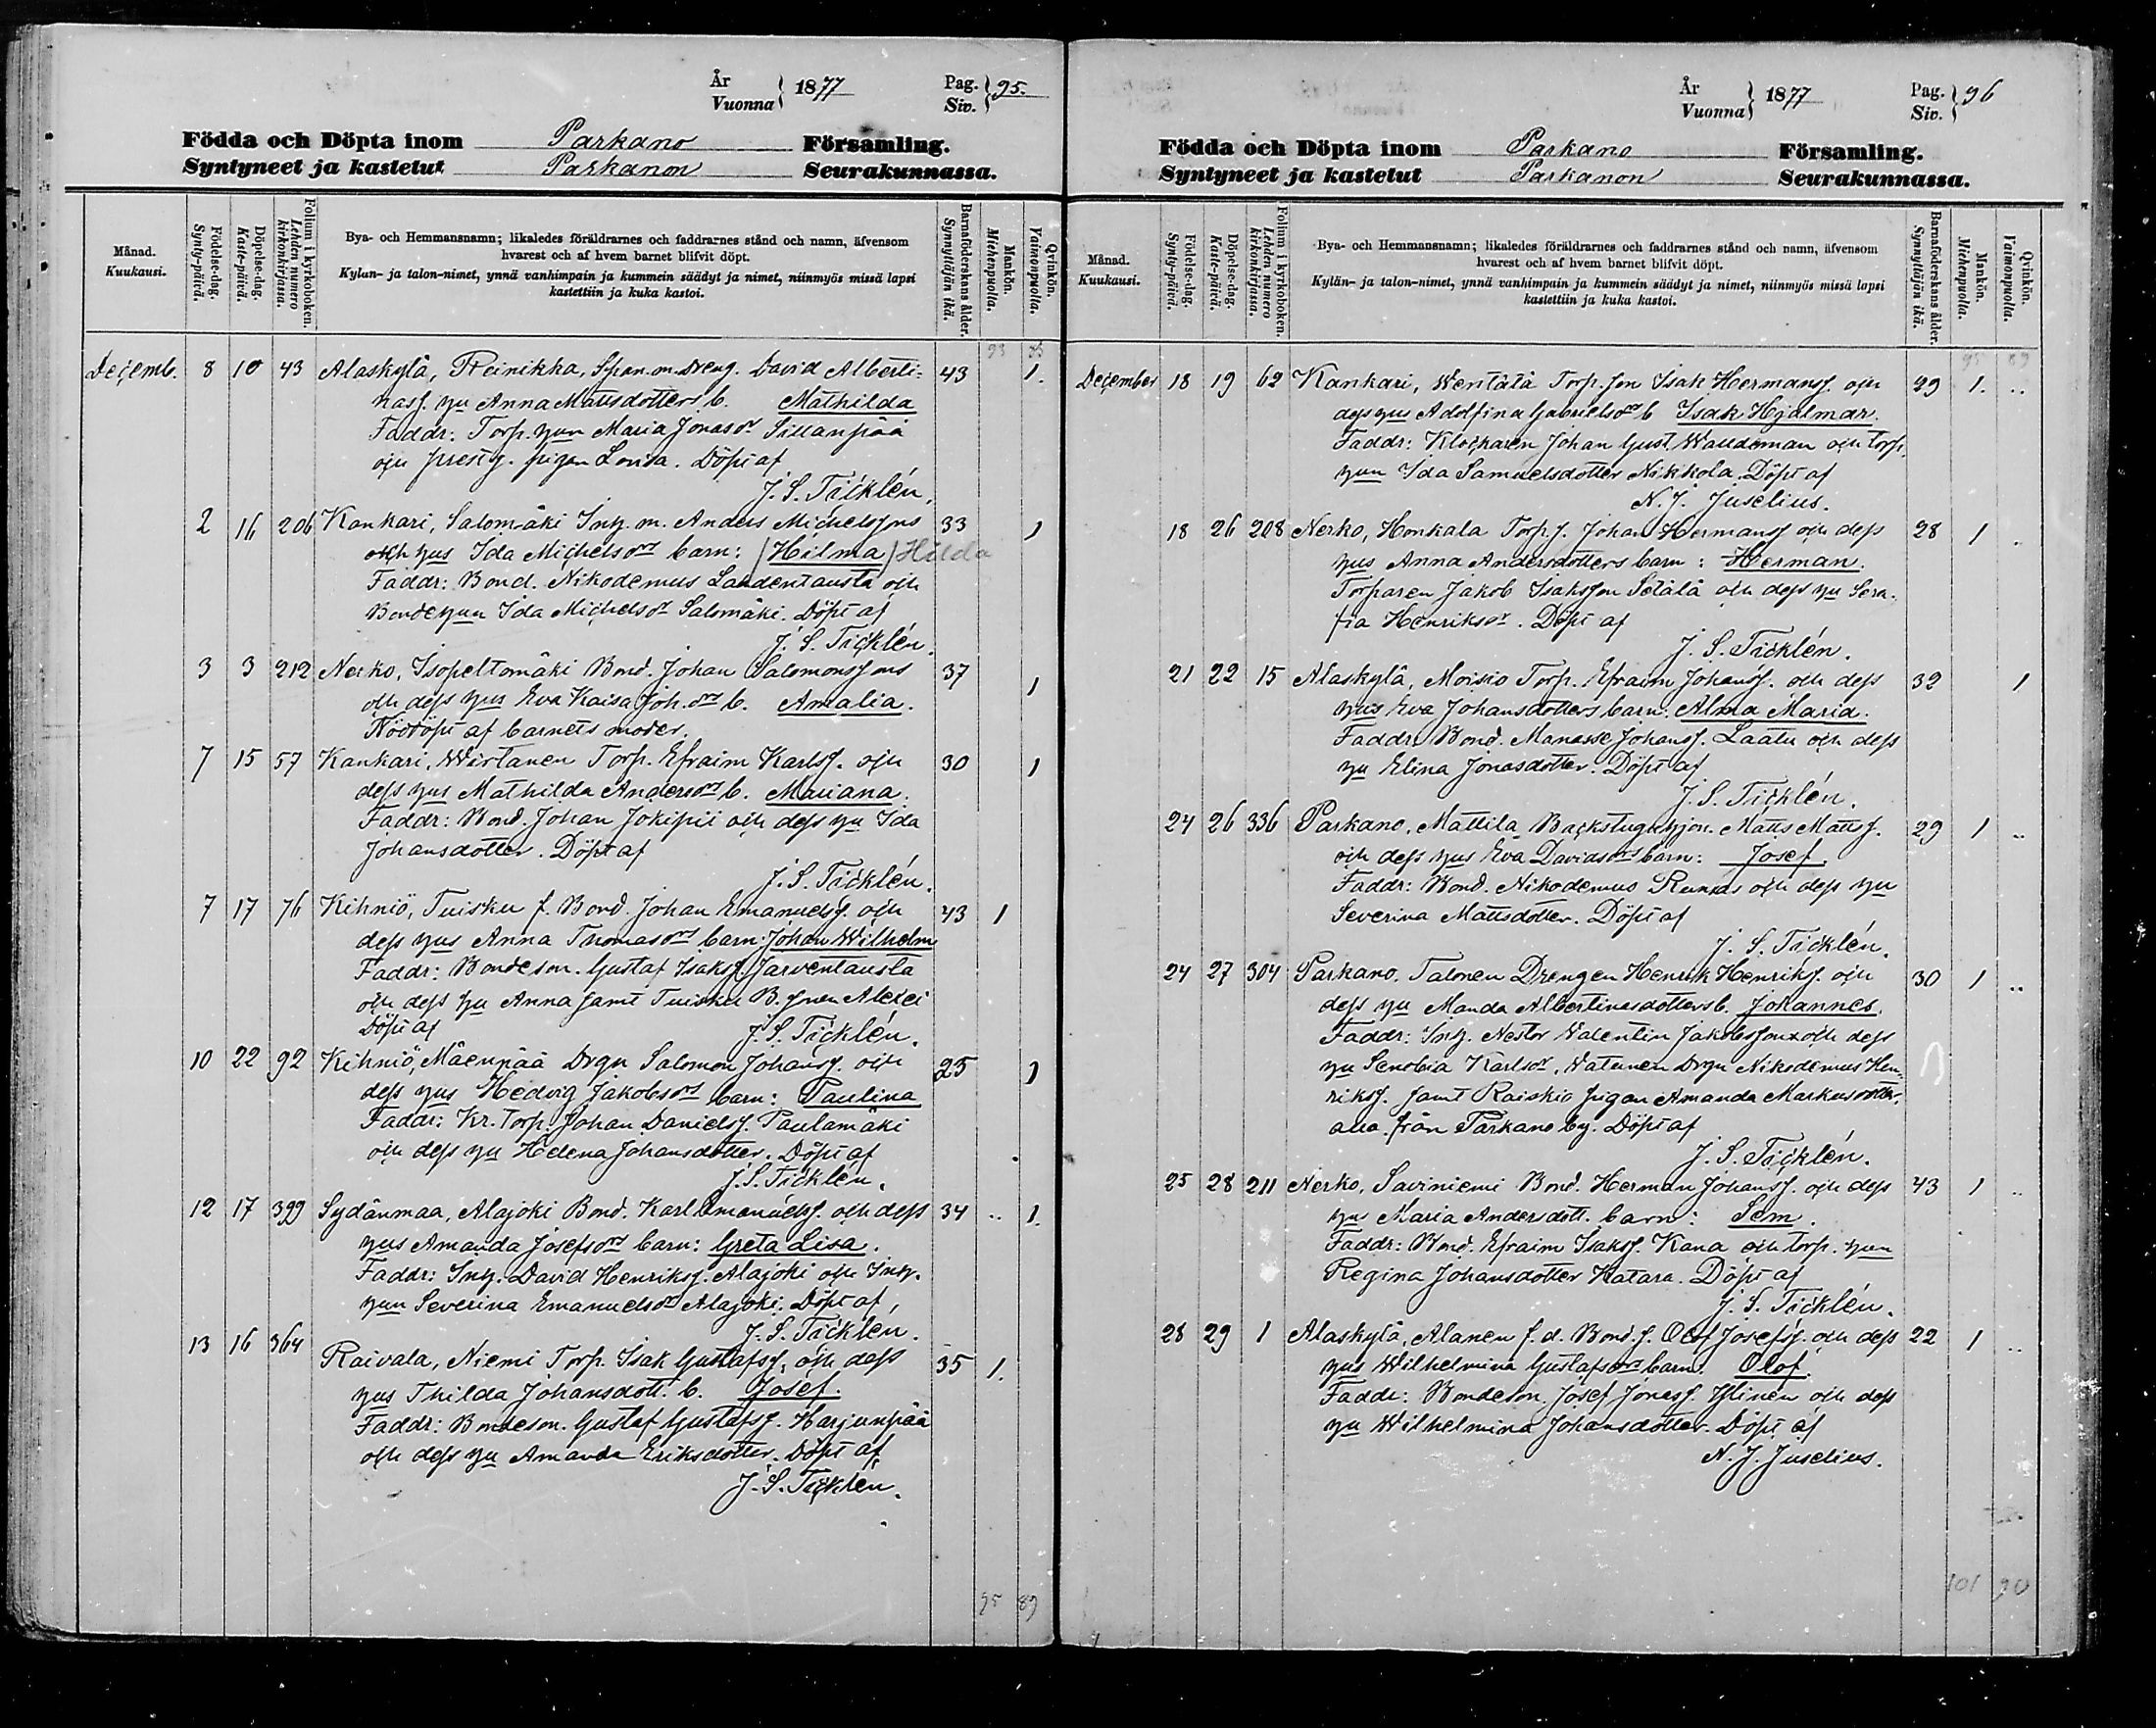 År
Vuonna } 1877 Pag.
Siv. } 95.
Födda och Döpta inom Parkano Församling.
Syntyneet ja kastetut Parkanon Seurakunnassa.
Månad.
Kuukausi.
Födelse-dag.
Synty-päivä.
Döpelse-dag.
Kaste-päivä.
Folium i kyrkoboken.
Lehden numero
kirkonkirjassa.
Bya- och Hemmansnamn; likaledes föräldrarnes och faddrarnes stånd och namn, äfvensom
hvarest och af hvem barnet blifvit döpt.
Kylän- ja talon-nimet, ynnä vanhimpain ja kummein säädyt ja nimet, niinmyös missä lapsi
kastettiin ja kuka kastoi.
Barnaföderskans ålder.
Synnyttäjän ikä.
Mankön.
Miehenpuolia.
Qvinkön.
Vaimonpuolia.
93
Decemb. 8 10 43 Alaskylä, Reinikka, Span.m. dreng. David Alberti- 43 1.
nasf. hu Anna Mattsdotters b. Mathilda
Faddr: Torp. hun Maria Jonasdr Sillanpää
och prestg. pigan Lovisa. Döpt af
J. S. Ticklén.
2 16 206 Kankari, Salomäki Inh. m. Anders Michelssons 33 1
och hus Ida Michelsdrs barn: (Hilma) Hilda
Faddr: Bond. Nikodemus Landentausta och
Bondehun Ida Michelsdr Salomäki. Döpt af
J. S. Ticklén.
3 3 212 Nerko, Isopeltomäki Bond. Johan Salomonssons 37 1
och dess hus Eva Kaisa Joh.drs b. Amalia.
Nöddöpt af barnets moder.
7 15 57 Kankari, Wirtanen Torp. Efraim Karlsf. och 30 1
dess hus Mathilda Andersdrs b. Mariana.
Faddr: Bond. Johan Jokipii och dess hu Ida
Johansdotter. Döpt af
J. S. Ticklén.
7 17 76 Kihniö, Tuisku f. Bond. Johan Emanuelsf. och 43 1
dess hus Anna Thomasdrs barn: Johan Wilhelm
Faddr: Bondeson. Gustaf Isaksf. Jarventausta
och dess hu Anna samt Tuisku B. sonen Alexei
Döpt af J. S. Ticklén.
10 22 92 Kihniö, Mäenpää Drgn Salomon Johansf. och 25 1
dess hus Hedvig Jakobsdrs barn: Paulina
Faddr: Kr. Torp. Johan Danielsf. Paulamäki
och dess hu Helena Johansdotter. Döpt af
J. S. Ticklén.
12 17 399 Sydänmaa, Alajoki Bond. Karl Emanuelsf. och dess 34 .. 1.
hus Amanda Josefsdrs barn: Greta Lisa.
Faddr: Inh. David Henriksf. Alajoki och Inh.
hun Severina Emanuelsdr Alajoki. Döpt af
J. S. Ticklén.
13 16 364 Raivala, Niemi Torp. Isak Gustafsf. och dess 35 1.
hus Thilda Johansdott. b. Josef.
Faddr: Bondeson. Gustaf Gustafsf. Harjunpää
och dess hu Amanda Eriksdotter. Döpt af
J. S. Ticklén.
95 89
År
Vuonna } 1877 Pag.
Siv. } 96
Födda och Döpta inom Parkano Församling.
Syntyneet ja kastetut Parkanon Seurakunnassa.
Månad.
Kuukausi.
Födelse-dag.
Synty-päivä.
Döpelse-dag.
Kaste-päivä.
Folium i kyrkoboken.
Lehden numero
kirkonkirjassa.
Bya- och Hemmansnamn; likaledes föräldrarnes och faddrarnes stånd och namn, äfvensom
hvarest och af hvem barnet blifvit döpt.
Kylän- ja talon-nimet, ynnä vanhimpain ja kummein säädyt ja nimet, niinmyös missä lapsi
kastettiin ja kuka kastoi.
Barnaföderskans ålder.
Synnyttäjän ikä.
Mankön.
Miehenpuolia.
Qvinkön.
Vaimonpuolia.
95 89
December 18 19 62 Kankari, Wentälä Torp. son Isak Hermansf. och 29 1. ..
dess hus Adolfina Gabrielsdrs b Isak Hjalmar.
Faddr: Klockaren Johan Gust. Waldeman och torp.
hun Ida Samuelsdotter Nikkola. Döpt af
N. J. Juselius.
18 26 208 Nerko, Honkala Torp. f. Johan Hermansf och dess 28 1 ..
hus Anna Andersdotters barn: Herman.
Torparen Jakob Isaksson Setälä och dess hu Sera-
fia Henriksdr. Döpt af
J. S. Ticklén.
21 22 15 Alaskylä, Moisio Torp. Efraim Johansf. och dess 32 1
hus Eva Johansdotters barn: Alma Maria.
Faddr: Bond. Manasse Johansf. Laatu och dess
hu Elina Jonasdotter. Döpt af
J. S. Ticklén.
24 26 336 Parkano, Mattila Backstuguhjon. Matts Mattsf. 29 1 ..
och dess hus Eva Davidsdrs barn: Josef.
Faddr: Bond. Nikodemus Rumas och dess hu
Severina Mattsdotter. Döpt af
J. S. Ticklén.
24 27 304 Parkano, Talonen Drengen Henrik Henriksf. och 30 1 ..
dess hu Manda Albertinesdotters b. Johannes.
Faddr: Inh. Nestor Valentin Jakobsson och dess
hu Senobia Karlsdr, Watanen Drgn Nikodemus Hen-
riksf. samt Raiskio pigan Amanda Markusdotter,
alla från Parkano by. Döpt af
J. S. Ticklén.
25 28 211 Nerko, Saviniemi Bond. Herman Johansf. och dess 43 1 ..
hus Maria Andersdott. barn: Sem.
Faddr: Bond. Efraim Isaksf. Kana och torp. hun
Regina Johansdotter Hatara. Döpt af
J. S. Ticklén.
28 29 1 Alaskylä, Alanen f. d. Bond. f. Olof Josefsf. och dess 22 1 ..
hus Wilhelmina Gustafsdrs barn: Olof.
Faddr: Bondeson. Josef Jonasf. Yllinen och dess
hu Wilhelmina Johansdotter. Döpt af
N. J. Juselius.
101 90